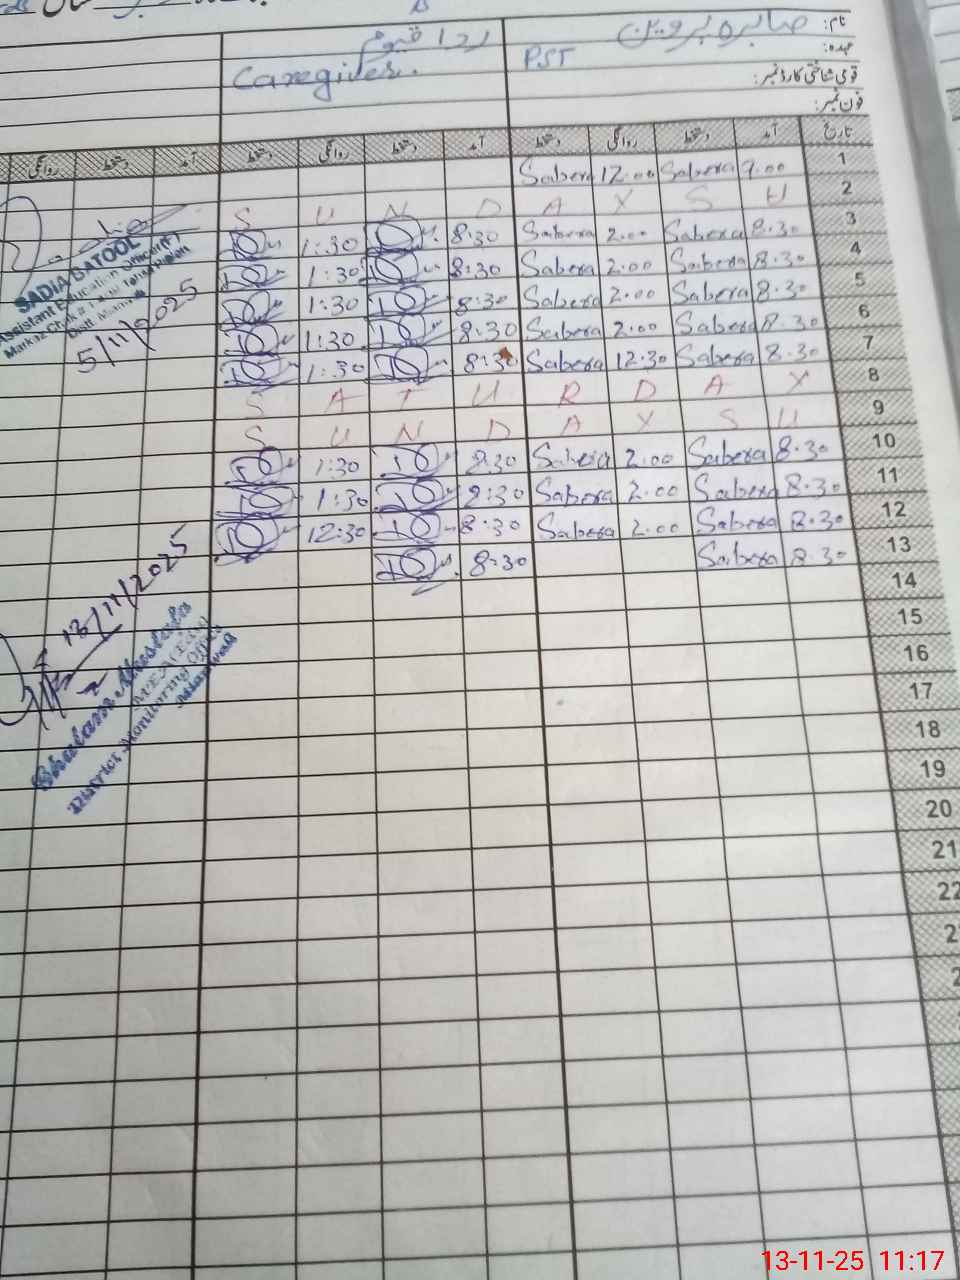 نام: صابرہ پروین ردا قیوم
عہدہ: PST Caregiver.
قومی شناختی کارڈ نمبر:
فون نمبر:
تاریخ آمد دستخط روانگی دستخط آمد دستخط روانگی دستخط آمد دستخط روانگی
1 7.00 Sabera 12.00 Sabera
2 S U N D A Y S U
3 8.30 Sabera 2.00 Sabera 8.30 1:30
4 8.30 Sabera 2.00 Sabera 8:30 1:30
5 8.30 Sabera 2.00 Sabera 8:30 1:30
6 8.30 Sabera 2.00 Sabera 8:30 1:30
7 8.30 Sabera 12.30 Sabera 8:30 1:30
8 S A T U R D A Y
9 S U N D A Y S U
10 8.30 Sabera 2.00 Sabera 8:30 1:30
11 8.30 Sabera 2.00 Sabera 8:30 1:30
12 8.30 Sabera 2.00 Sabera 8:30 12:30
13 8.30 Sabera 8:30
14
15
16
17
18
19
20
21
22
SADIA BATOOL
Assistant Education Officer(F)
5/11/2025
13/11/2025
Ghulam Mustafa
MEA
District Monitoring Office
13-11-25 11:17